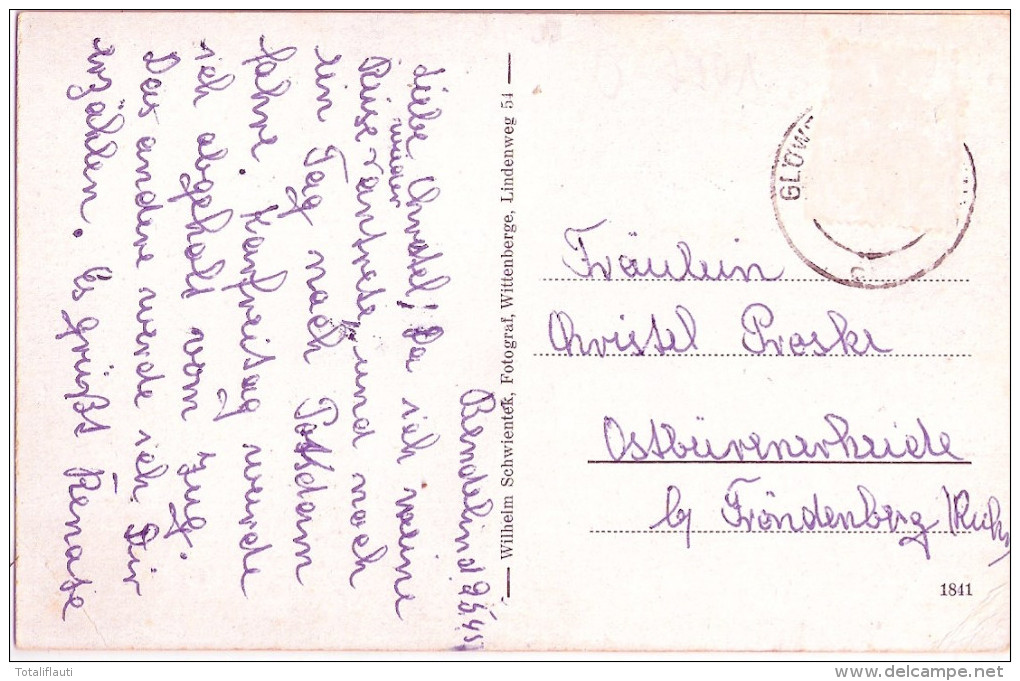 Bendelin d 9.4.41
Liebe Christel! Da ich meine
Reise wieder antrete, und noch
ein Tag nach Potsdam
fahre. Karfreitag werde
ich abgeholt vom Zug.
Das andere werde ich Dir
erzählen. Es grüßt Renate
Wilhelm Schwientek, Fotograf, Wittenberge, Lindenweg 54
GLÖW
Fräulein
Christel Proske
Ostbürenerheide
by Fröndenberg /Ruhr
1841
Totaliflauti
delcampe.net